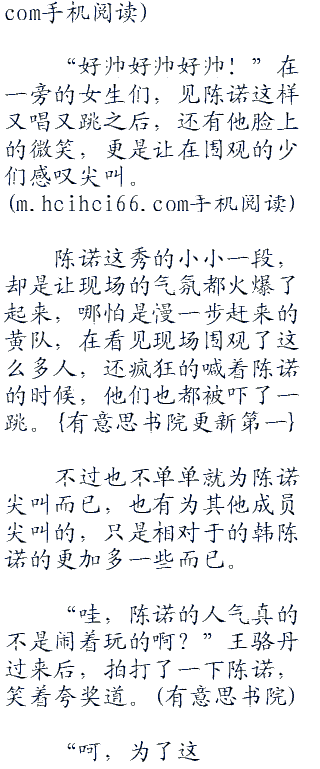 com手机阅读)
“好帅好帅好帅！”在
一旁的女生们，见陈诺这样
又唱又跳之后，还有他脸上
的微笑，更是让在围观的少
们感叹尖叫。
(m.hcihci66.com手机阅读)
陈诺这秀的小小一段，
却是让现场的气氛都火爆了
起来，哪怕是慢一步赶来的
黄队，在看见现场围观了这
么多人，还疯狂的喊着陈诺
的时候，他们也都被吓了一
跳。{有意思书院更新第一}
不过也不单单就为陈诺
尖叫而已，也有为其他成员
尖叫的，只是相对于的韩陈
诺的更加多一些而已。
“哇，陈诺的人气真的
不是闹着玩的啊？”王骆丹
过来后，拍打了一下陈诺，
笑着夸奖道。(有意思书院)
“呵，为了这